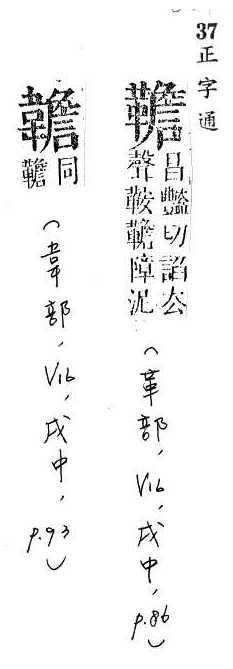 37正字通
韂
昌豔切諂去
聲鞍韂障泥
（革部，V16，戌中，p.86）
同
韂
（韋部，V16，戌中，p.93）